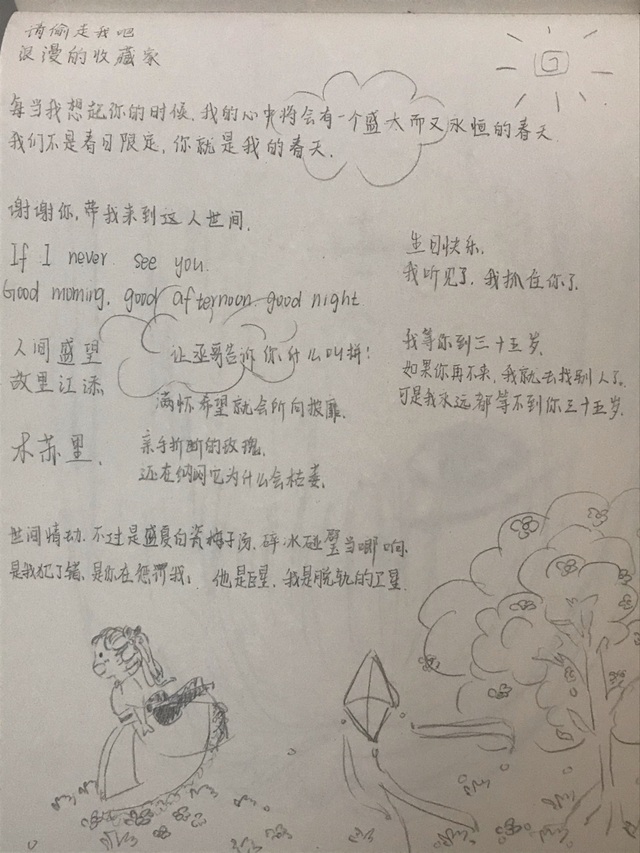 请偷走我吧
浪漫的收藏家
每当我想起你的时候,我的心中将会有一个盛大而又永恒的春天
我们不是春日限定,你就是我的春天.
谢谢你,带我来到这人世间.
If I never see you.
Good morning, good afternoon good night
生日快乐.
我听见了,我抓住你了.
人间盛望
故里江添
让丞哥告诉你,什么叫拼!
满怀希望就会所向披靡.
我等你到三十五岁.
如果你再不来,我就去找别人了.
可是我永远都等不到你三十五岁.
木苏里.
亲手折断的玫瑰.
还在纳闷它为什么会枯萎.
世间情动,不过是盛夏白瓷梅子汤,碎冰碰壁当啷响.
是我犯了错,是你在惩罚我; 他是巨星,我是脱轨的卫星.